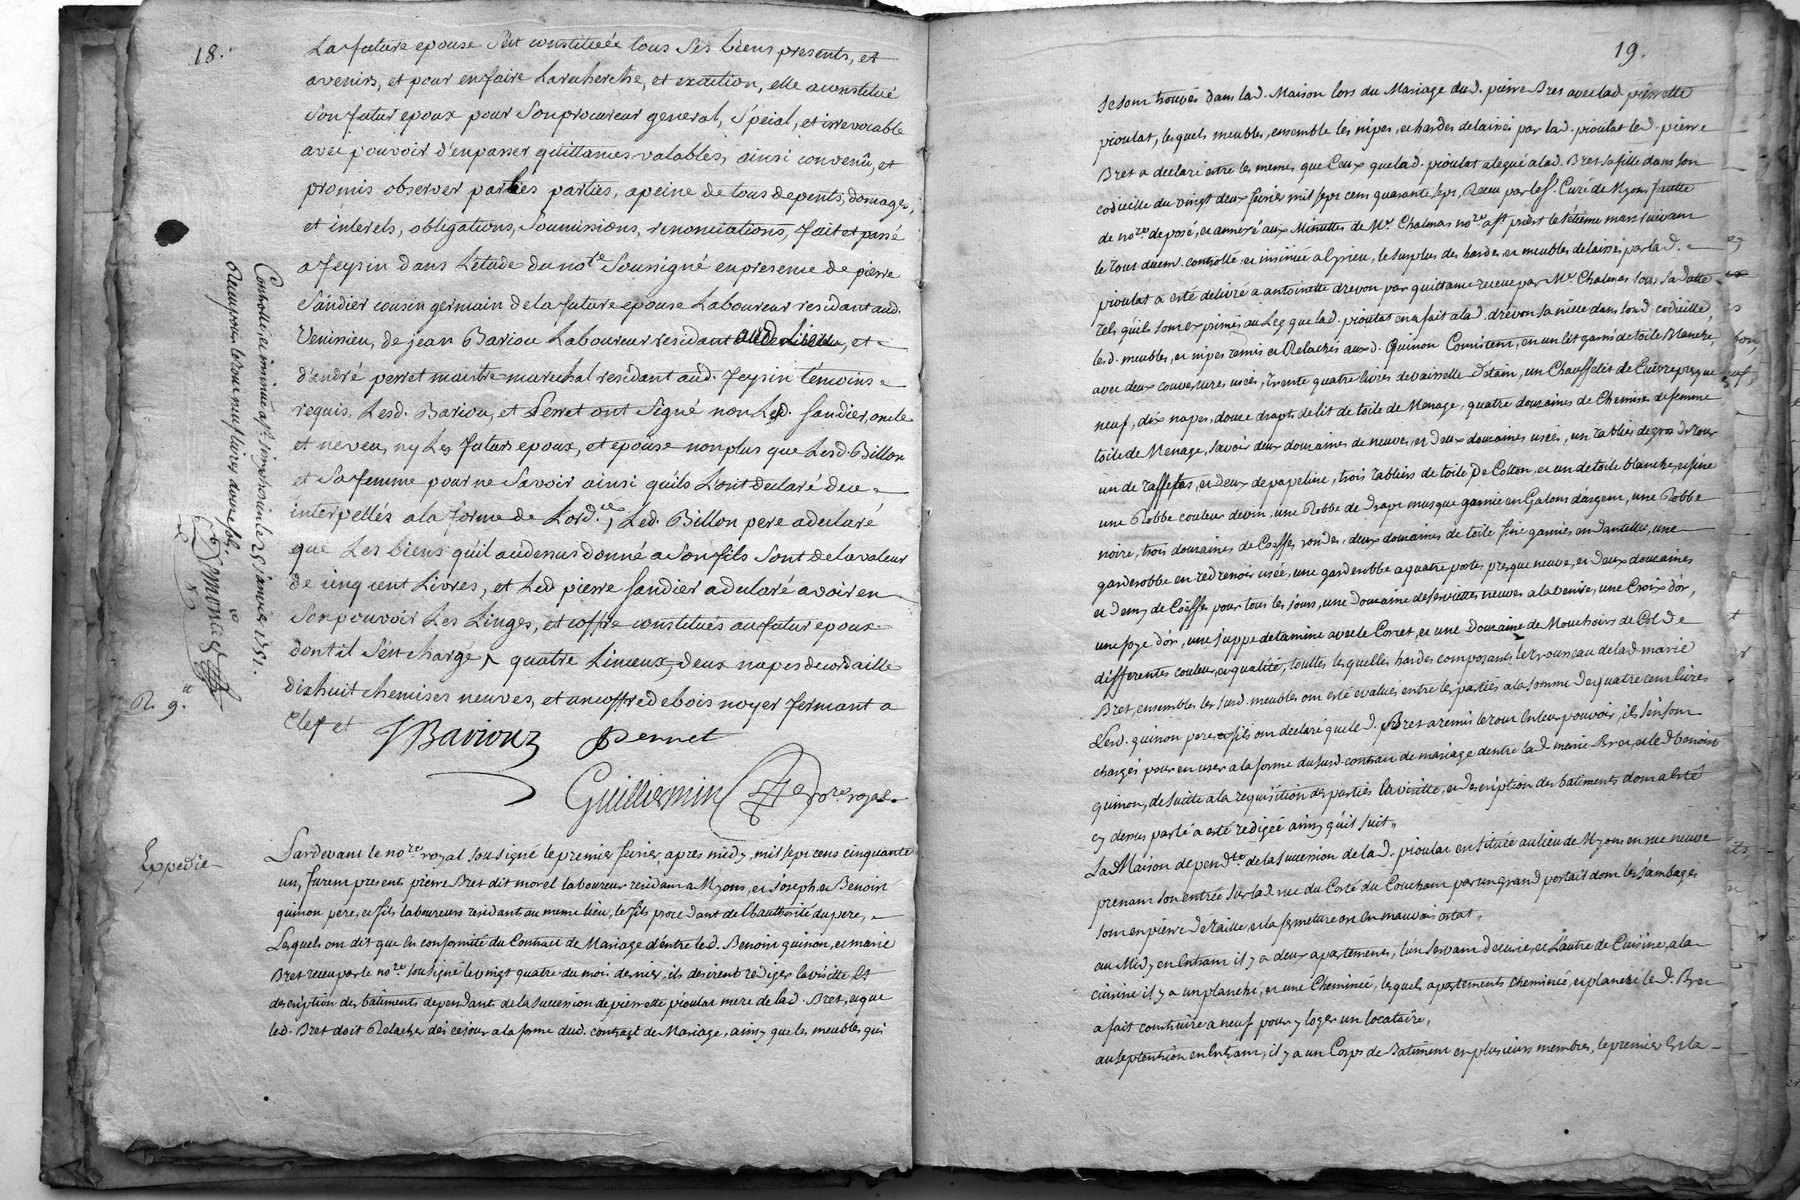 18.
La future epouse s'est constituée tous ses biens presents, et
avenirs, et pour en faire la recherche, et exaction, elle a constitué
son futur epoux pour son procureur general, special, et irrevocable
avec pouvoir d'en passer quittances valables, ainsi convenû, et
promis observer par les parties, a peine de tous depents, domages,
et interets, obligations, soumissions, renonciations, fait et passé
a feysin dans l'etude du no.re soussigné en presence de pierre
Sandier cousin germain de la future epouse Laboureur residant aud.
Venissieu, de jean Bariou Laboureur residant aud. lieu, et
d'andré perret maitre marechal residant aud. feysin temoins
requis, Lesd. Bariou, et Perret ont signé non Led. sandier, oncle
et neveu, ny Les futurs epoux, et epouse non plus que Lesd. Billon
et sa femme pour ne savoir ainsi qu'ils L'ont declaré de ce
interpellés a la forme de Lord.ce, Led. Billon pere a declaré
que Les biens qu'il a cy dessus donné a son fils sont de la valeur
de cinq cent Livres, et Led. pierre sandier a declaré avoir en
son pouvoir Les Linges, et coffre constitués au futur epoux
dont il s'est chargé, quatre Linceux, deux napes de cordaille
dixhuit chemises neuves, et un coffre de bois noyer fermant a
clef et
JBariouz perret
Guilliermin no.re royal
Controllé, et insinué a st simphorien le 25 janvier 1751.
Receu pour le tout neuf livres douze sols.
R. 9.tt
Expedié
Pardevant le no.re royal soussigné le premier fevrier, apres midy, mil sept cens cinquante
un, furent presents pierre Bret dit morel laboureur residant a Myons, et joseph, et Benoit
quinon pere, et fils laboureurs residant au meme lieu, le fils procedant de l'authorité du pere,
Lesquels ont dit que en conformité du Contract de Mariage d'entre led. Benoit quinon, et marie
Bret receu par le no.re soussigné le vingt quatre du mois dernier, ils desirent rediger la visitte et
description des batiments dependants de la succession de pierrette pioulat mere de lad. Bret, et que
led. Bret doit Relacher dès ce jour a la forme dud. contract de Mariage, ainsy que les meubles qui
19.
se sont trouvés dans lad. Maison lors du Mariage dud. pierre Bret avec lad. pierrette
pioulat, lesquels meubles, ensemble les nipes, et hardes delaissés par lad. pioulat led. pierre
Bret a declaré etre les memes que Ceux que lad. pioulat a legué a lad. Bret sa fille dans son
codicille du vingt deux fevrier mil sept cent quarante sept, Receu par le s.r Curé de Myons fautte
de no.re deposé, et annexé aux Minuttes de M.e Chalmas no.re a st priest le setieme mars suivant
le tout duem. controllé et insinué a lyrieu, le surplus des hardes et meubles delaissés par lad.
pioulat a esté delivré a antoinette drevon par quittance receue par M.e Chalmas sous sa datte
tels qu'ils sont exprimés au Leg que lad. pioulat en a fait a lad. drevon sa niece dans sond. codicille,
lesd. meubles, et nipes remis et Relachés auxd. Quinon Consistent, en un lit garni de toile blanche,
avec deux couvertures usées, trente quatre livres de vaisselle d'etain, un Chauffelit de Cuivre presque
neuf, dix napes, douze draps de lit de toile de Menage, quatre douzaines de Chemises de femme
toile de Menage, savoir deux douzaines de neuves, et deux douzaines usées, un tablier de gros de tour
un de taffetas, et deux de papeline, trois tabliers de toile de Cotton, et un de toile blanche, et fine
une Robbe couleur de vin, une Robbe de drap musque garnie en Galons d'argent, une Robbe
noire, trois douzaines de Coeffes rondes, deux douzaines de toile fine garnies en dantelle, une
garderobbe en redrenois usée, une garderobbe a quatre portes presque neuve, et deux douzaines
et demy de Coëffes pour tous les jours, une douzaine de serviettes neuves a la venise, une Croix d'or,
une foye d'or, une juppe detamine avec le Corcet, et une douzaine de Mouchoirs de Col de
differentes couleur, et qualité, touttes lesquelles hardes composants le trousseau de lad. marie
Bret, ensembles les susd. meubles ont esté evalués entre les parties a la somme de quatre cent livres
Lesd. quinon pere, et fils ont declaré que led. Bret a remis le tout en leur pouvoir, ils s'en sont
chargés pour en user a la forme du susd. contract de mariage d'entre lad. marie Bret, et led. benoist
quinon, de suitte a la requisition des parties la visitte, et description des batiments dont a esté
cy dessus parlé a esté redigée ainsy qu'il suit,
La Maison dependte. de la succession de lad. pioulat est située au lieu de Myons en rue neuve
prenant son entrée sur lad. rue du Costé du Couchant par un grand portail dont les jambages
sont en pierre de taille, et la fermeture est en mauvais estat,
au Midy en entrant il y a deux apartements, l'un servant d'ecurie, et l'autre de Cuisine, a la
cuisine il y a un planché, et une Cheminée, lesquels apartements cheminée, et planché led. Bret
a fait construire a neuf pour y loger un locataire,
au septention en entrant, il y a un Corps de batiment en plusieurs membres, le premier est la